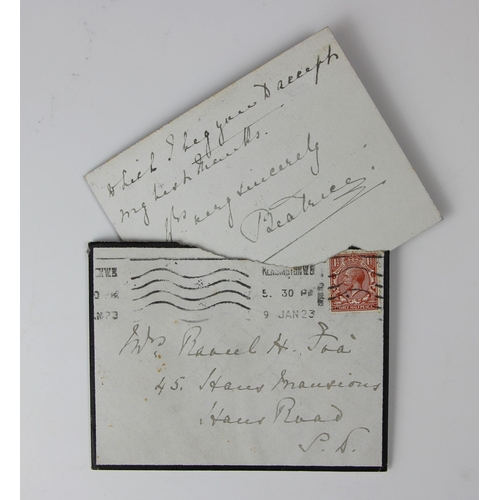 which I beg you to accept
my best thanks.
Yrs very sincerely
Beatrice.
KENSINGTON W.8
5. 30 PM
9 JAN 23
THREE HALFPENCE
Mrs. H. Foa
45. Hans Mansions
Hans Road
S. W.